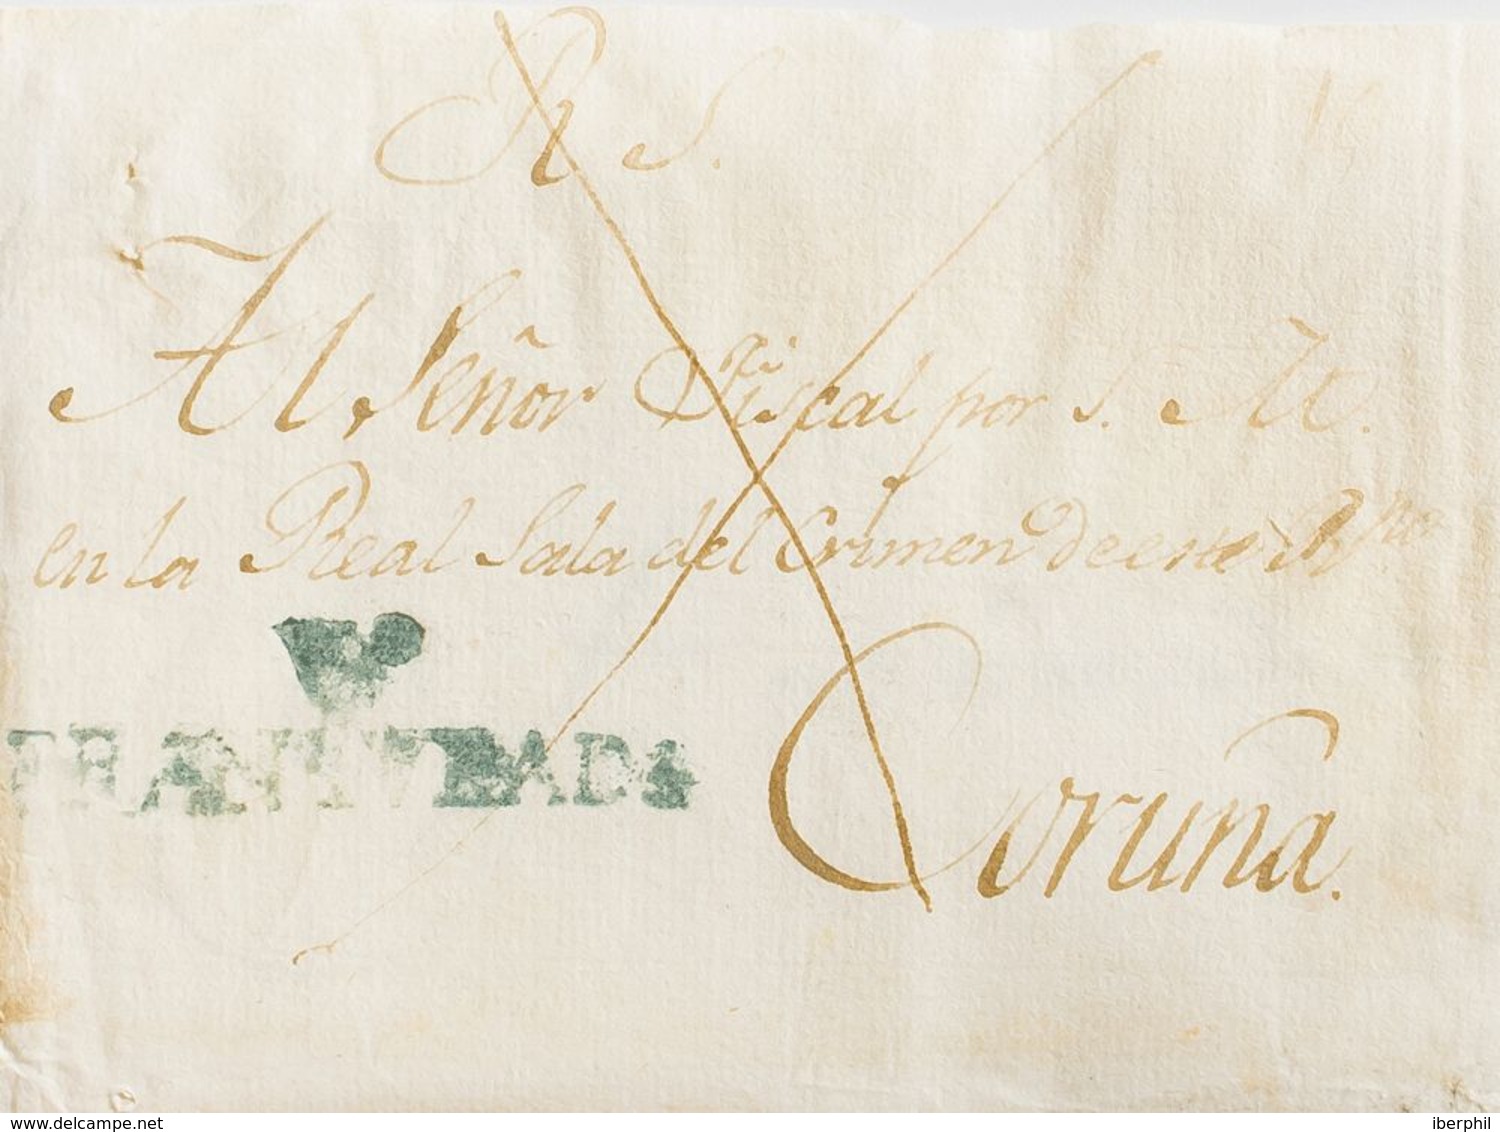 R. S.
Al Señor Fiscal por S. M.
en la Real Sala del Crimen de este R.ⁿᵒ
Coruña.
www.delcampe.net
iberphil